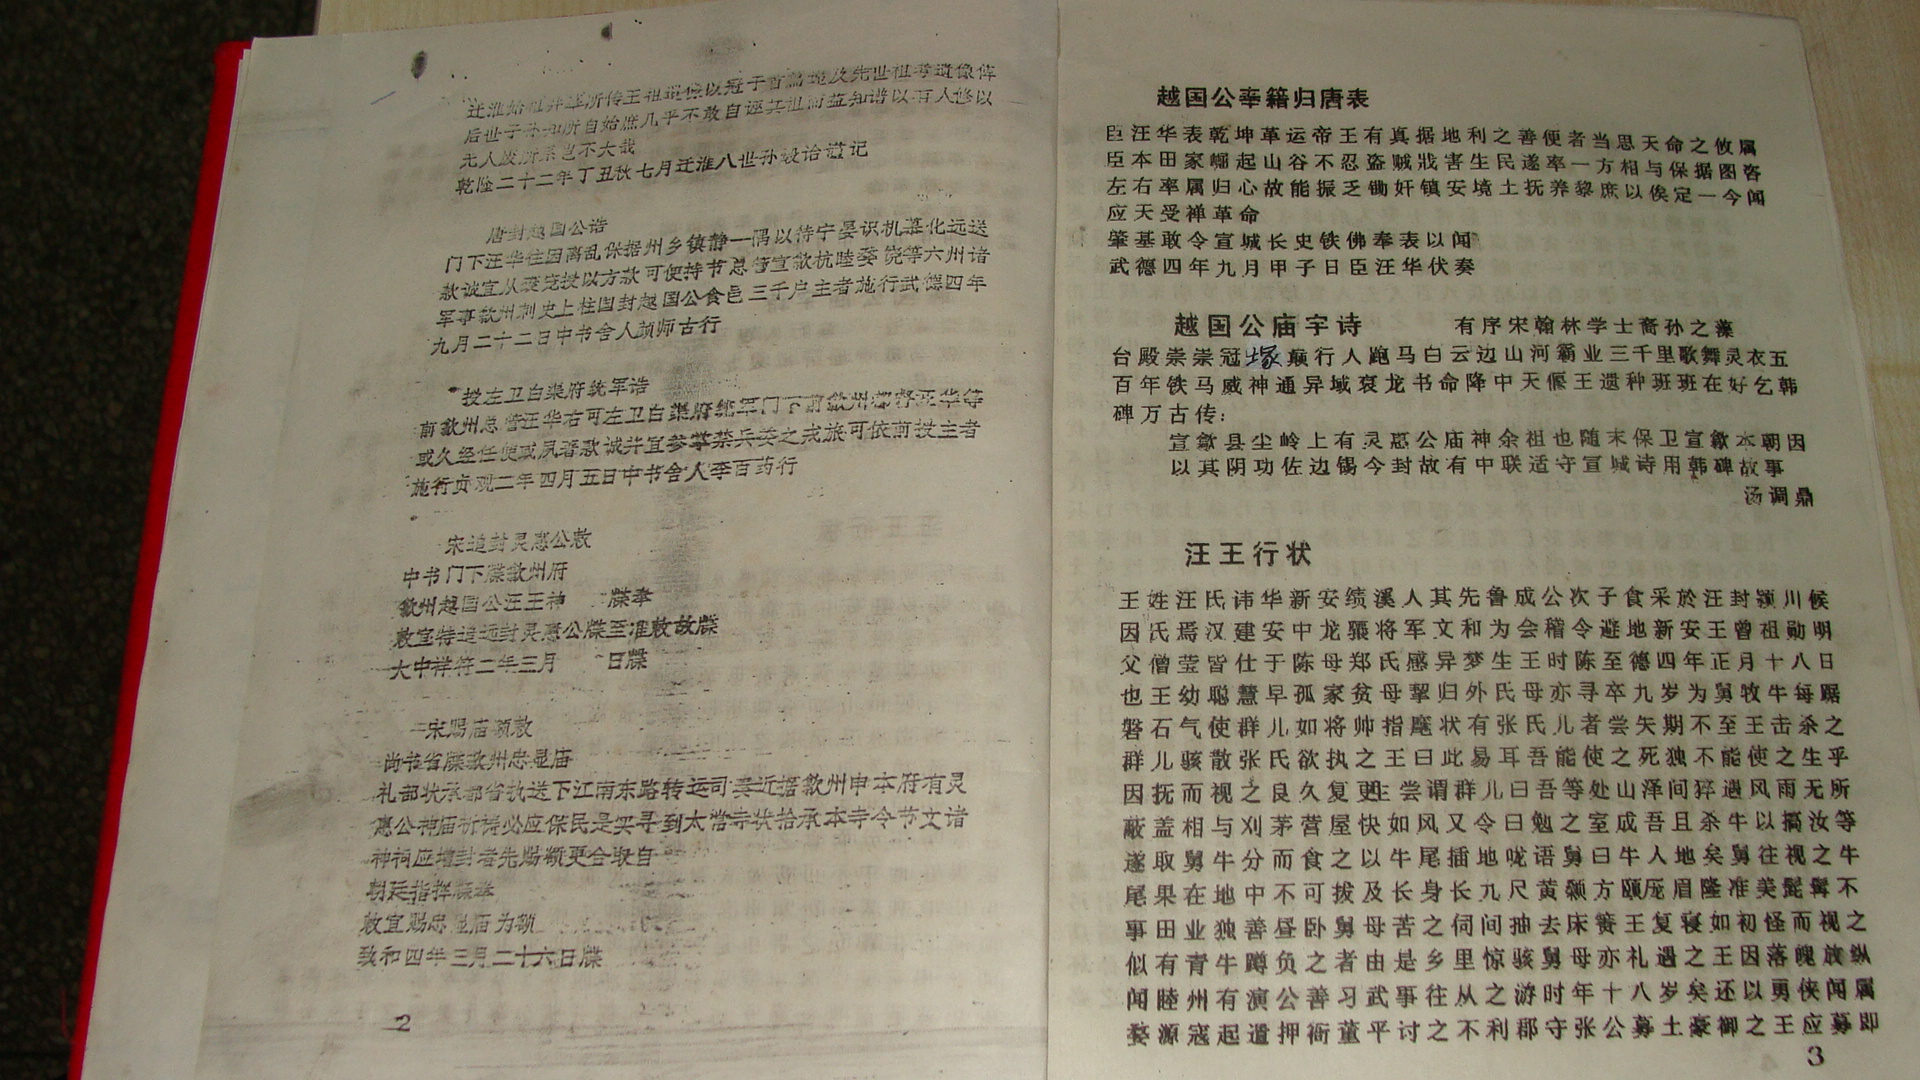 后世子孙知所自始庶几乎不敢自诬其祖而益知谱以有人修以
无人废所系岂不大哉
乾隆二十二年丁丑秋七月迁淮八世孙毅诒谨记
唐封越国公诰
门下汪华往因离乱保据州乡镇静一隅以待宁晏识机慕化远送
款诚宜从褒宠授以方款可使持节总管宣歙杭睦婺饶等六州诸
军事歙州刺史上柱国封越国公食邑三千户主者施行武德四年
九月二十二日中书舍人颜师古行
授左卫白渠府统军诰
前歙州总管汪华右可左卫白渠府统军门下前歙州都督汪华等
或久经任使或夙著款诚并宜参掌禁兵委之戎旅可依前授主者
施行贞观二年四月五日中书舍人李百药行
宋追封灵惠公敕
中书门下牒歙州府
歙州越国公汪王神 牒奉
敕宜特追远封灵惠公牒至准敕故牒
大中祥符二年三月 日牒
宋赐庙额敕
尚书省牒歙州忠显庙
礼部状承都省执送下江南东路转运司奏近据歙州申本府有灵
惠公神庙祈祷必应保民是实寻到太常寺状拾承本寺令节文诸
神祠应增封者先赐额更合取自
朝廷指挥牒奉
敕宜赐忠显庙为额
致和四年三月二十六日牒
2
越国公奉籍归唐表
臣汪华表乾坤革运帝王有真据地利之善便者当思天命之攸属
臣本田家崛起山谷不忍盗贼戕害生民遂率一方相与保据图咨
左右率属归心故能振乏锄奸镇安境土抚养黎庶以俟定一今闻
应天受禅革命
肇基敢令宣城长史铁佛奉表以闻
武德四年九月甲子日臣汪华伏奏
越国公庙宇诗 有序宋翰林学士裔孙之藻
台殿崇崇冠塚巅行人跑马白云边山河霸业三千里歌舞灵衣五
百年铁马威神通异域衮龙书命降中天偃王遗种班班在好乞韩
碑万古传：
宣歙县尘岭上有灵惠公庙神余祖也随末保卫宣歙本朝因
以其阴功佐边锡今封故有中联适守宣城诗用韩碑故事
汤调鼎
汪王行状
王姓汪氏讳华新安绩溪人其先鲁成公次子食采於汪封颍川候
因氏焉汉建安中龙骧将军文和为会稽令避地新安王曾祖勋明
父僧莹皆仕于陈母郑氏感异梦生王时陈至德四年正月十八日
也王幼聪慧早孤家贫母挈归外氏母亦寻卒九岁为舅牧牛每踞
磐石气使群儿如将帅指麾状有张氏儿者尝失期不至王击杀之
群儿骇散张氏欲执之王曰此易耳吾能使之死独不能使之生乎
因抚而视之良久复更生尝谓群儿曰吾等处山泽间猝遇风雨无所
蔽盖相与刈茅营屋快如风又令曰勉之室成吾且杀牛以犒汝等
遂取舅牛分而食之以牛尾插地咙语舅曰牛入地矣舅往视之牛
尾果在地中不可拔及长身长九尺黄颡方颐厖眉隆准美髭髯不
事田业独善昼卧舅母苦之伺间抽去床箦王复寝如初怪而视之
似有青牛蹲负之者由是乡里惊骇舅母亦礼遇之王因落魄放纵
闻睦州有演公善习武事往从之游时年十八岁矣还以勇侠闻属
婺源寇起遣押衙董平讨之不利郡守张公募土豪御之王应募即
3